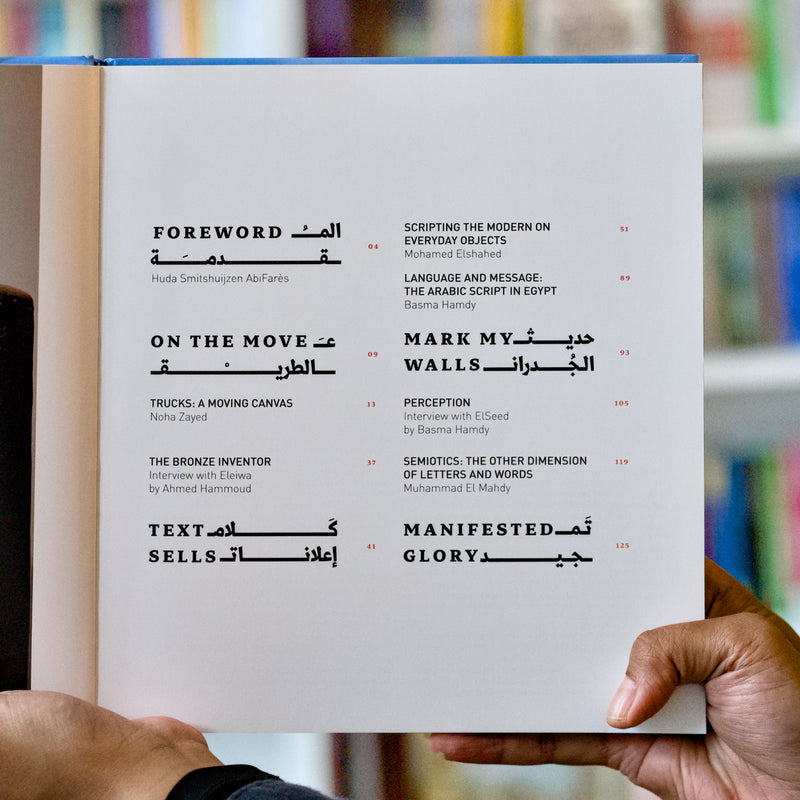 FOREWORD المُـ
ـقـدمَـة
04
Huda Smitshuijzen AbiFarès
ON THE MOVE عَـ
ـالطريـْـق
09
TRUCKS: A MOVING CANVAS
13
Noha Zayed
THE BRONZE INVENTOR
37
Interview with Eleiwa
by Ahmed Hammoud
TEXT كَـلامـ
SELLS إعلانـاتـ
41
SCRIPTING THE MODERN ON
51
EVERYDAY OBJECTS
Mohamed Elshahed
LANGUAGE AND MESSAGE:
89
THE ARABIC SCRIPT IN EGYPT
Basma Hamdy
MARK MY حديـثـ
WALLS الجُـدرانـ
93
PERCEPTION
105
Interview with ElSeed
by Basma Hamdy
SEMIOTICS: THE OTHER DIMENSION
119
OF LETTERS AND WORDS
Muhammad El Mahdy
MANIFESTED تَمـ
GLORY ـجيـد
125